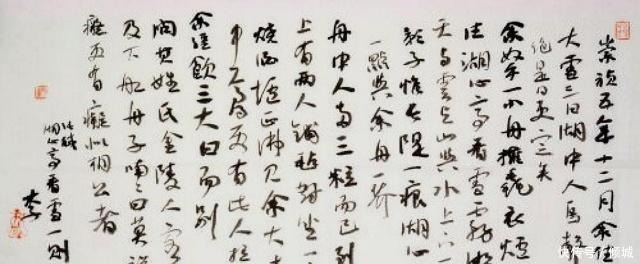 崇禎五年十二月余住
大雪三日湖中人鳥聲
絕是日更定矣
余拏一小舟擁毳衣爐
往湖心亭看雪霧凇
天與雲與山與水上下一
影子惟長堤一痕湖心
一點與余舟一芥
舟中人兩三粒而已到
上有兩人鋪氈對坐一
燒酒爐正沸見余大
中焉得更有此人拉
余強飲三大白而別
問其姓氏金陵人客
及下船舟子喃喃曰莫說
癡更有癡似相公者
張岱
湖心亭看雪一則
快传号/倾城